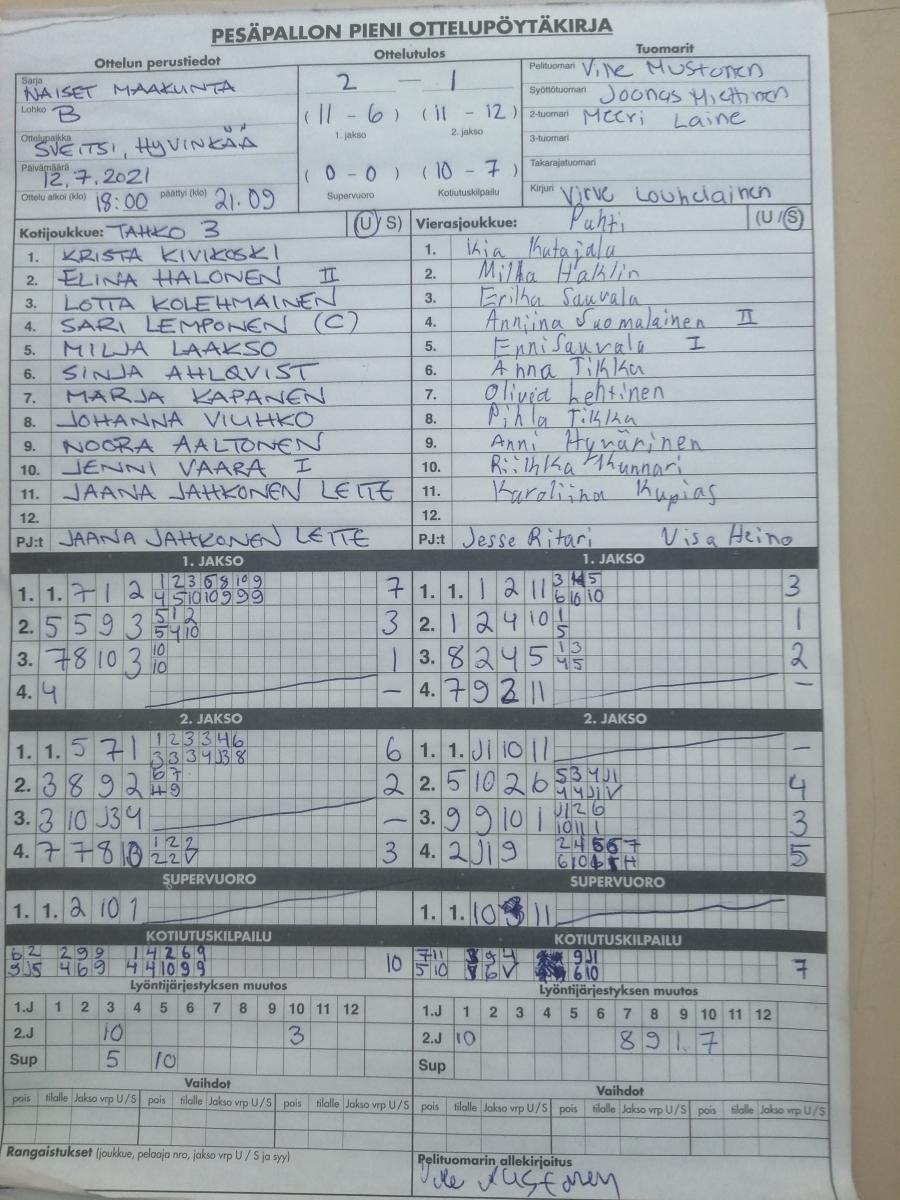 PESÄPALLON PIENI OTTELUPÖYTÄKIRJA
Ottelun perustiedot
Ottelutulos
Tuomarit
Sarja NAISET MAAKUNTA
Lohko B
Ottelupaikka SVEITSI, HYVINKÄÄ
Päivämäärä 12.7.2021
Ottelu alkoi (klo) 18:00 päättyi (klo) 21.09
2 — 1
(11 - 6) (11 - 12)
1. jakso 2. jakso
(0 - 0) (10 - 7)
Supervuoro Kotiutuskilpailu
Pelituomari Ville Mustonen
Syöttötuomari Joonas Miettinen
2-tuomari Meeri Laine
3-tuomari
Takarajatuomari
Kirjuri Virve Louhelainen
Kotijoukkue: TAHKO 3 (U/S)
1. KRISTA KIVIKOSKI
2. ELINA HALONEN II
3. LOTTA KOLEHMAINEN
4. SARI LEMPONEN (C)
5. MILJA LAAKSO
6. SINJA AHLQVIST
7. MARJA KAPANEN
8. JOHANNA VIUHKO
9. NOORA AALTONEN
10. JENNI VAARA I
11. JAANA JAHKONEN LEITE
12.
PJ:t JAANA JAHKONEN LEITE
Vierasjoukkue: Puhti (U/S)
1. Kia Katajala
2. Milka Haklin
3. Erika Sauvala
4. Anniina Suomalainen II
5. Enni Sauvala I
6. Anna Tikka
7. Olivia Lehtinen
8. Pihla Tikka
9. Anni Hyvärinen
10. Riikka Kunnari
11. Karoliina Kupias
12.
PJ:t Jesse Ritari Visa Heino
1. JAKSO
1. 1. 7 1 2 1 2 3 6 8 10 9 7
4 5 10 10 9 9 9
2. 5 5 9 3 5 1 2 3
5 4 10
3. 7 8 10 3 10 1
10
4. 4 —
1. JAKSO
1. 1. 1 2 11 3
6 10 10
2. 1 2 4 10 1 1
5
3. 8 2 4 5 1 3 2
4 5
4. 7 9 2 11 —
2. JAKSO
1. 1. 5 7 1 1 2 3 3 4 6 6
3 3 3 4 J3 8
2. 3 8 9 2 6 7 2
4 9
3. 3 10 J3 4 —
4. 7 7 8 10 1 2 2 3
2 2 V
2. JAKSO
1. 1. J1 10 11 —
2. 5 10 2 6 5 3 4 J1 4
4 4 J1 V
3. 9 9 10 1 J1 2 6 3
10 11 1
4. 2 J1 9 2 4 5 6 7 5
SUPERVUORO
1. 1. 2 10 1
SUPERVUORO
1. 1. 10 11
KOTIUTUSKILPAILU
6 2 2 9 9 1 4 2 6 9 10
9 J5 4 6 9 4 4 10 9 9
KOTIUTUSKILPAILU
7 11 9 4 9 J1 7
5 10 6 V 6 10
Lyöntijärjestyksen muutos
1.J 1 2 3 4 5 6 7 8 9 10 11 12
2.J 10 3
Sup 5 10
Lyöntijärjestyksen muutos
1.J 1 2 3 4 5 6 7 8 9 10 11 12
2.J 10 8 9 1. 7
Sup
Vaihdot
pois tilalle Jakso vrp U/S pois tilalle Jakso vrp U/S pois tilalle Jakso vrp U/S
Vaihdot
pois tilalle Jakso vrp U/S pois tilalle Jakso vrp U/S pois tilalle Jakso vrp U/S
Rangaistukset (joukkue, pelaaja nro, jakso vrp U / S ja syy)
Pelituomarin allekirjoitus